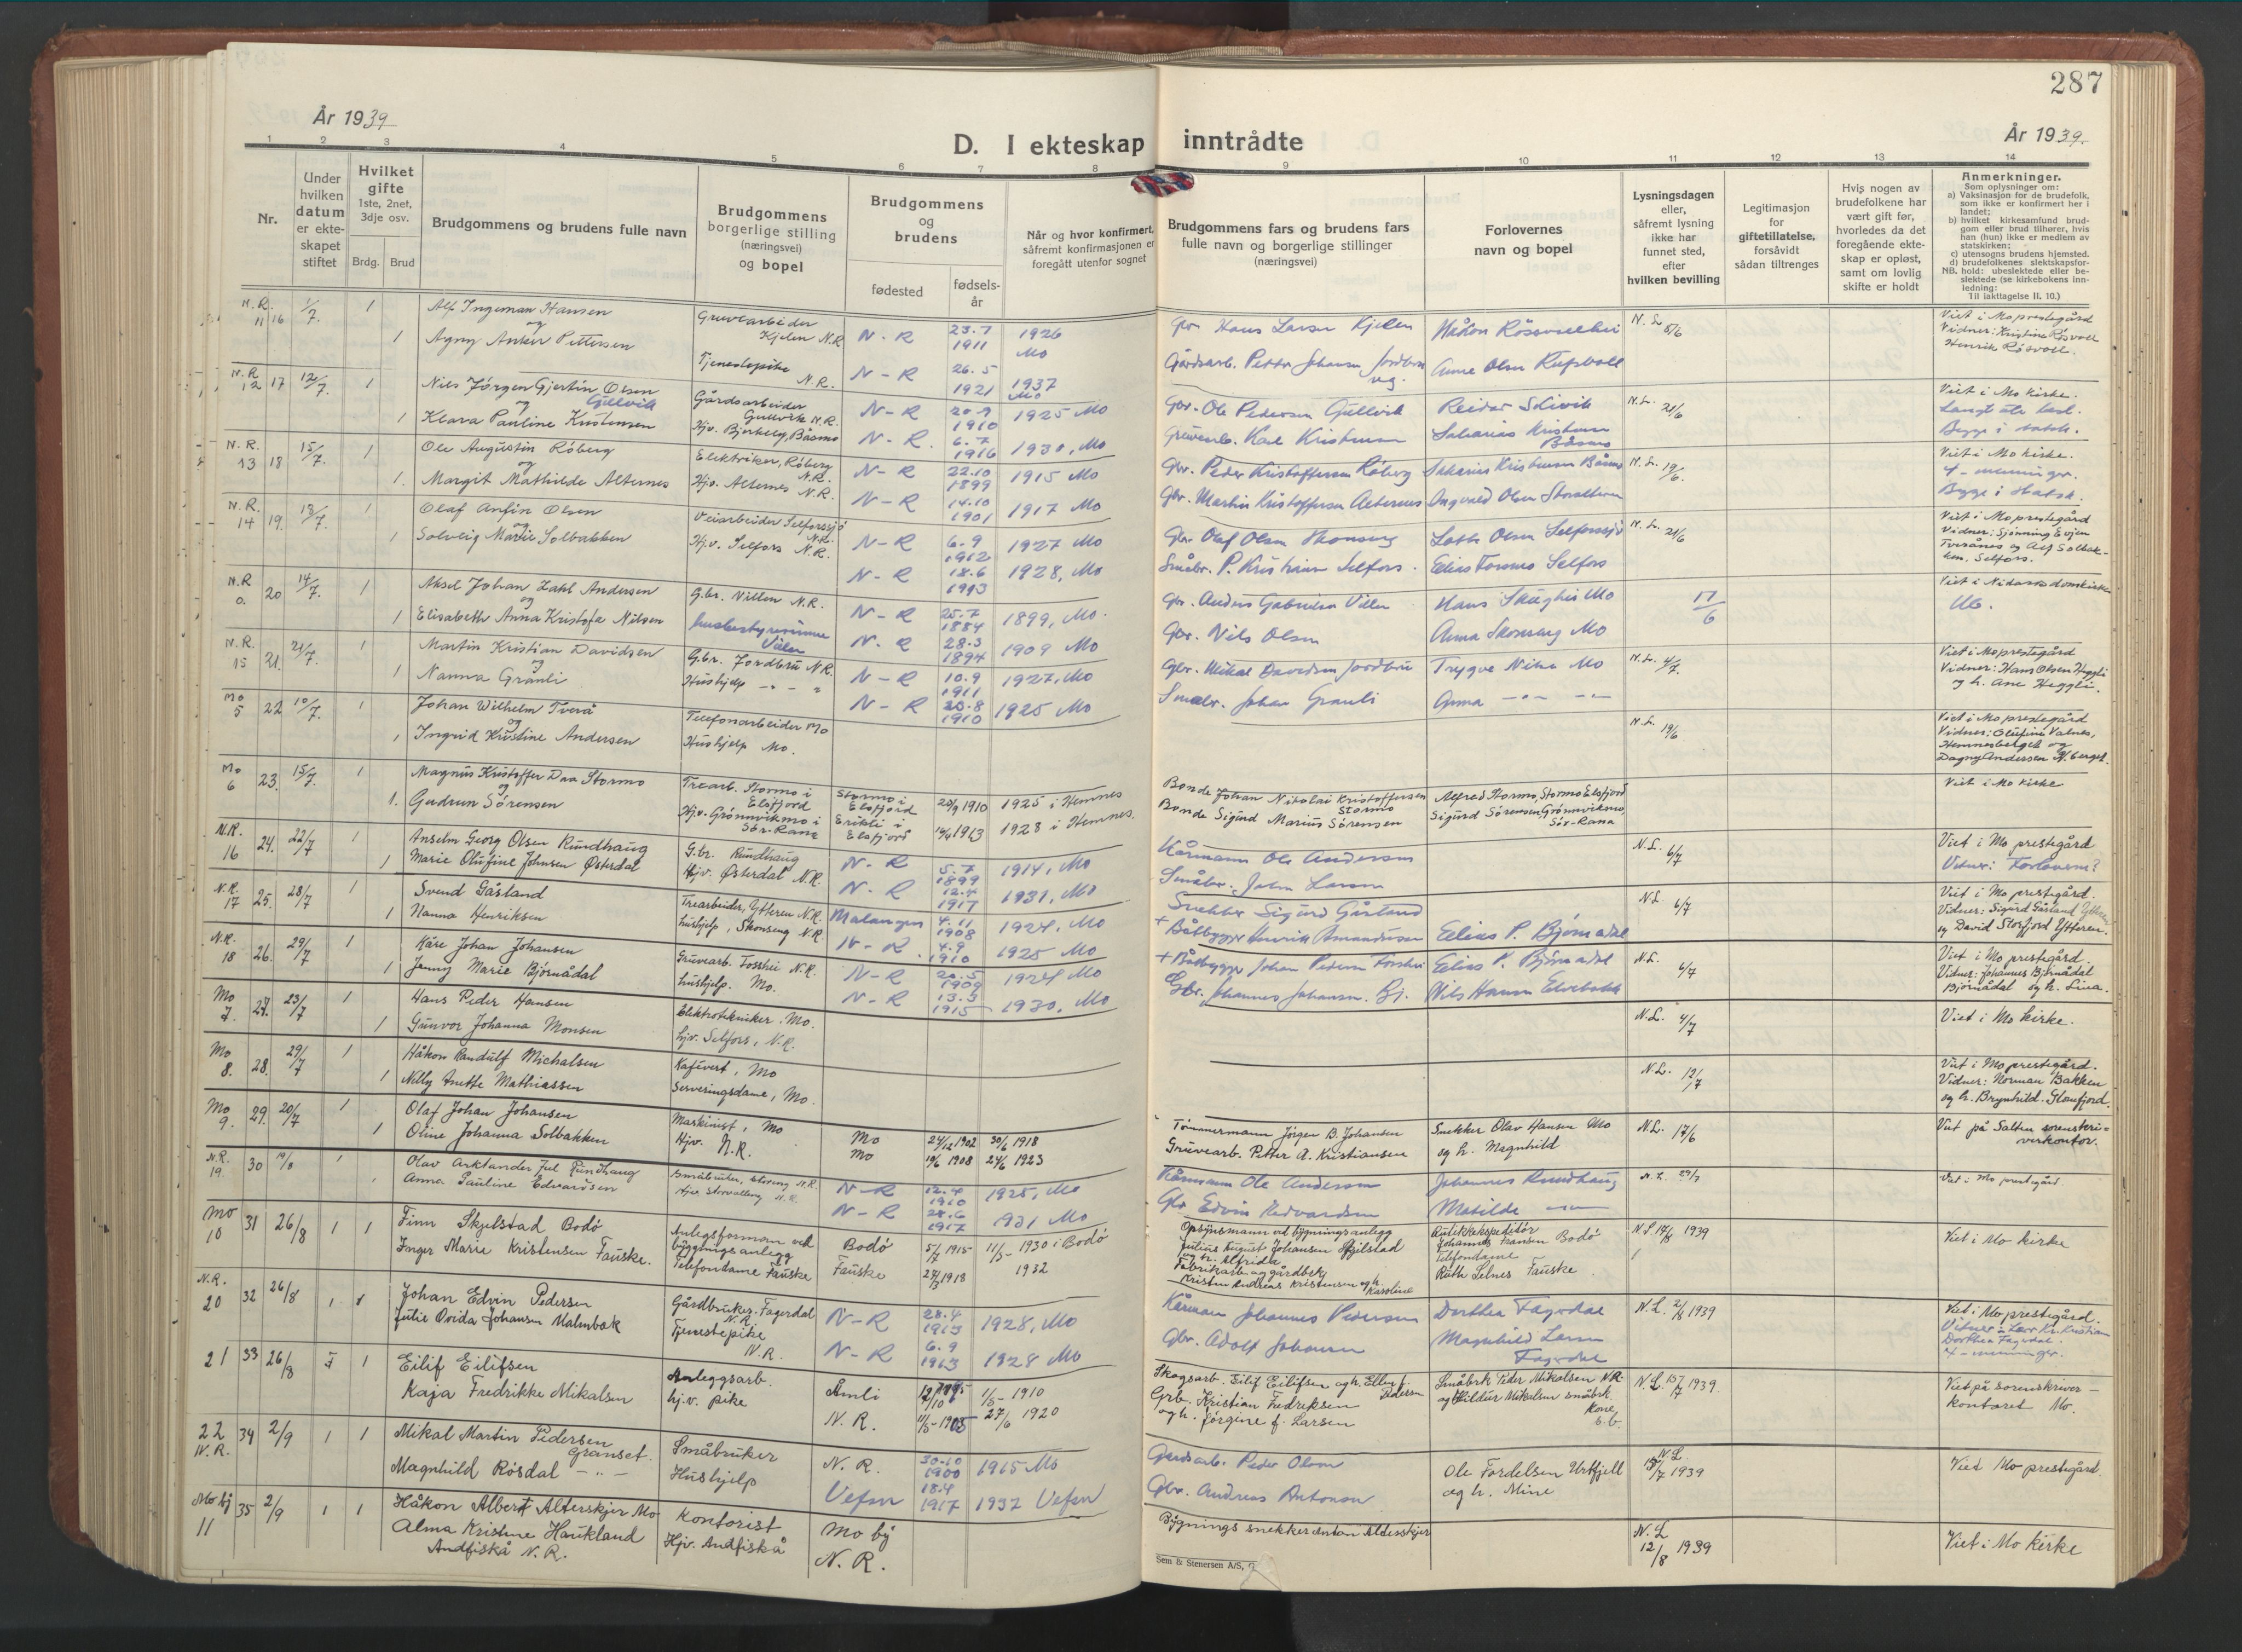 287
År 1939
År 1939.
D. I ekteskap inntrådte
1 2 3 4 5 6 7 8 9 10 11 12 13 14
Nr.
Under
hvilken
datum
er ekte-
skapet
stiftet
Hvilket
gifte
1ste, 2net,
3dje osv.
Brdg. Brud
Brudgommens og brudens fulle navn
Brudgommens
borgerlige stilling
(næringsvei)
og bopel
Brudgommens
og
brudens
fødested
fødsels-
år
Når og hvor konfirmert,
såfremt konfirmasjonen er
foregått utenfor sognet
Brudgommens fars og brudens fars
fulle navn og borgerlige stillinger
(næringsvei)
Forlovernes
navn og bopel
Lysningsdagen
eller,
såfremt lysning
ikke har
funnet sted,
efter
hvilken bevilling
Legitimasjon
for
giftetillatelse,
forsåvidt
sådan tiltrenges
Hvis nogen av
brudefolkene har
vært gift før,
hvorledes da det
foregående ekte-
skap er opløst,
samt om lovlig
skifte er holdt
Anmerkninger.
Som oplysninger om:
a) Vaksinasjon for de brudefolk,
som ikke er konfirmert her i
landet;
b) hvilket kirkesamfund brud-
gom eller brud tilhører, hvis
han (hun) ikke er medlem av
statskirken;
c) utensogns brudens hjemsted.
d) brudefolkenes slektskapsfor-
NB. hold: ubeslektede eller be-
slektede (se kirkebokens inn-
ledning:
Til iakttagelse II. 10.)
N.R. 11 16 1/7. 1 Alf Ingeman Hansen Gruvearbeider Kjelen N.R. N-R 23.7 1911 1926 Mo Gbr. Hans Larsen Kjelen N.L. 5/6 Viet i Mo prestegård
og
1 Agny Anker Pettersen Tjenestepike N.R. N-R 26.5 1921 1937 Mo Gårdsarb. Vidner: Kristine Røsvoll
Henrik Røsvoll.
N.R. 12 17 12/7. 1 Nils Jörgen Gjertin Olsen Gullvik Gårdsarbeider Gullvik N.R. N-R 1910 1925 Mo Gbr. Ole Pedersen Gullvik N.L. 21/6 Viet i Mo kirke.
og
1 Klara Pauline Kristensen Hjv. Bjerkelg, Båsmo N-R. 6.7 1916 1930, Mo Gruvearb. Karl Kristensen Sakarias Kristensen Båsmo
N.R. 13 18 15/7. 1 Ole Augustin Röberg Elektriker, Röberg N.R. N-R 22.10 1899 1915 Mo Gbr. Peder Kristoffersen Röberg Sakarias Kristensen Båsmo N.L. 19/6. Viet i Mo kirke.
og
1. Margit Mathilde Alternes Hjv. Alternes N.R. N-R 14.10 1901 1917 Mo Gbr. Martin Kristoffersen Alternes Ingvald Olsen 4-menninger.
N.R. 14 19. 13/7. 1 Olaf Anfin Olsen Veiarbeider Selforssjö N.R. N-R 6.9 1912 1927 Mo Gbr. Olaf Olsen Skonseng Olsen Selforssjö N.L. 21/6 Viet i Mo prestegård
og
1 Solveig Marie Solbakken Hjv. Selfors N.R. N-R 18.6 1913 1928, Mo Småbr. P. Kristian Selfors. Elias Forsmo Selfors Vidner: Sjönning Evjen
Tverånes og Alf Solbak-
ken, Selfors.
N.R. 0. 20 14/7. 1 Aksel Johan Dahl Andersen G.br. Villen N.R. N-R 25.7 1884 1899, Mo. Gbr. Anders Gabrielsen Villen Hans Mo 17/6 Viet i Nidarosdomkirke
og
1 Elisabeth Anna Kristofa Nilsen husbestyrerinne Villen N-R 28.3 1894 1909 Mo Gbr. Nils Olsen Anna Skonseng Mo
N.R. 15 21. 21/7. 1 Martin Kristian Davidsen G.br. Jordbru N.R. N-R 10.9 1911 1927, Mo Gbr. Mikal Davidsen Jordbru Trygve Mo N.L. 4/7. Viet i Mo prestegård
og
1 Nanna Granli Hushjelp N-R 28.8 1910 1925 Mo Småbr. Johan Granli Anna Vidner: Hans Olsen Heggli
og h. Ane Heggli.
Mo 5 22 10/7. 1 Johan Wilhelm Tverå Telefonarbeider Mo N.L. 19/6 Viet i Mo prestegård
og
1 Ingrid Kristine Andersen Hushjelp Mo. Vidner: Olufine Valnes,
Hemnesberget og
Dagny Andersen H.berget.
Mo 6 23. 15/7. 1 Magnus Kristoffer Daa Stormo Trearb. Stormo i Elsfjord Stormo i Elsfjord 20/9 1910 1925 i Hemnes Bonde Johan Nikolai Kristoffersen Stormo Alfred Stormo, Stormo Elsfjord Viet i Mo kirke
og
1. Gudrun Sörensen Hjv. Grönnvikmo i Sör-Rana Erikli i Elsfjord 1913 1928 i Hemnes. Bonde Sigurd Marius Sörensen Sigurd Sörensen, Grönnvikmo, Sör-Rana
N.R. 16 24. 22/7 1 Anselm Georg Olsen Rundhaug G.br. Rundhaug N-R 5.7 1899 1914, Mo Kårmann Ole Andersen N.L. 6/7 Viet i Mo prestegård
1 Marie Olufine Johnsen Østerdal Hjv. Østerdal N.R. N-R 12.4 1917 1931, Mo Småbr. John Larsen Vidner: Forloverne?
N.R. 17 25. 28/7 1 Svend Gåsland Trearbeider, Ytteren N.R. Malangen 4.11 1908 1924, Mo Snekker Sigurd Gåsland N.L. 6/7 Viet i Mo prestegård.
1 Nanna Henriksen hushjelp, Skonseng N.R. N-R 4.9 1910 1925 Mo + Båtbygger Henrik Amundsen Elias P. Bjørnådal Vidner: Sigurd Gåsland Ytteren
og David Storfjord Ytteren.
N.R. 18 26. 29/7 1 Kåre Johan Johansen Gruvearb. Fosshei N.R. N-R 20.5 1909 1924 Mo + Båtbygger Johan Pedersen Fosshei Elias P. Bjørnådal N.L. 6/7 Viet i Mo prestegård.
1 Jenny Marie Bjørnådal hushjelp. Mo. N-R 13.3 1915 1930, Mo Gbr. Johannes Johansen. Bj. Nils Hansen Vidner: Johannes Bjørnådal
Bjørnådal og h. Lina.
Mo 7. 27. 23/7 1 Hans Peder Hansen Elektrotekniker. Mo. N.L. 4/7 Viet i Mo kirke.
1 Gunvor Johanna Monsen hjv. Selfors, N.R.
Mo 8. 28. 29/7 1 Håkon Randulf Michalsen Kafévert, Mo N.L. 12/7 Viet i Mo prestegård.
1 Nelly Anette Mathiassen Serveringsdame, Mo. Vidner: Norman Bakken
og h. Brynhild. Glomfjord.
Mo 9. 29. 20/7 1 Olaf Johan Johansen Maskinist, Mo Mo 24/12 1902 30/6 1918 Tömmermann Jörgen B. Johansen Snekker Olav Hansen Mo N.L. 17/6 Viet på Salten sorenskri-
1 Oline Johanna Solbakken Hjv. N.R. Mo 19/6 1908 24/6 1923 Gruvearb. Petter A. Kristiansen og h. Magnhild verkontor.
N.R. 19. 30 1 Olav Arktander Jul Rundhaug Småbruker, N.R. N-R 12.4 1910 1925, Mo Kårmann Ole Andersen Johannes Rundhaug N.L. Viet i Mo prestegård
Anna Pauline Edvardsen N-R 28.6 1917 1931 Mo Gbr. Edvin Edvardsen Matilde
Mo 10 31 26/8 1 1 Finn Skjelstad Bodö Anlegsformann ved bygningsanlegg Bodö 5/7 1915 11/5- 1930 i Bodö Opsynsmann ved bygningsanlegg Butikkekspeditör N.L. 1939 Viet i Mo kirke
Julius August Johansen Skjelstad Johannes Fransen Bodö
og h. Alfrida Telefondame
Inger Marie Kristensen Fauske. Telefondame Fauske Fauske 1913 1932 Fabrikarb. og gårdbr. Ruth Selnes Fauske
Kristen Andreas Kristensen og h. Karoline
N.R. 20 32 26/8 1 Johan Edvin Pedersen Gårdbruker. Fagerdal N.R. N-R 28.4 1913 1928, Mo Kårmann Johannes Pedersen Dorthea Fagerdal N.L. 2/8 1939 Viet i Mo prestegård.
Julie Ovida Johansen Malmbak Tjenestepike N.R. N-R 6.9 1913 1928 Mo Gbr. Adolf Johansen Magnhild Larsen Fagerdal Dorthea Fagerdal.
4-menninger.
21 33 26/8 1 Eilif Eilifsen Anleggsarb. Åmli 1/5- 1910 Skogsarb. Eilif Eilifsen og h. Ellen f. Pedersen Småbrk Peder Mikalsen N.R. N.L. 15/7 1939 Viet på sorenskriver-
Kaja Fredrikke Mikalsen hj.v. pike N.R. 11/5- 1905 27/6 1920 Grb. Kristian Fredriksen og Hildur Mikalsen småbrk. kontoret Mo.
og h. Jörgine f. Larsen Kone,
s.b.
22 N.R. 34 2/9 1 1 Mikal Martin Pedersen Granset. Småbruker N.R. 30.10 1900 1915 Mo Gårdsarb. Peder Olsen Ole Fordelsen Urtfjell N.L. 15/7 1939 Viet Mo prestegård.
Magnhild Rösdal - " - Hushjelp Vefsn 18.4 1917 1932 Vefsn Gbr. Andreas Antonsen og h. Mine
Mo by 11 35 2/9 1 1 Håkon Albert Alterskjer Mo Kontorist Mo by Bygnings snekker Anton Alderskjer N.L. 12/8 1939 Viet i Mo kirke
Alma Kristine Haukland Hjv. Andfiskå N.R.
Andfiskå N.R.
Sem & Stenersen A/S,